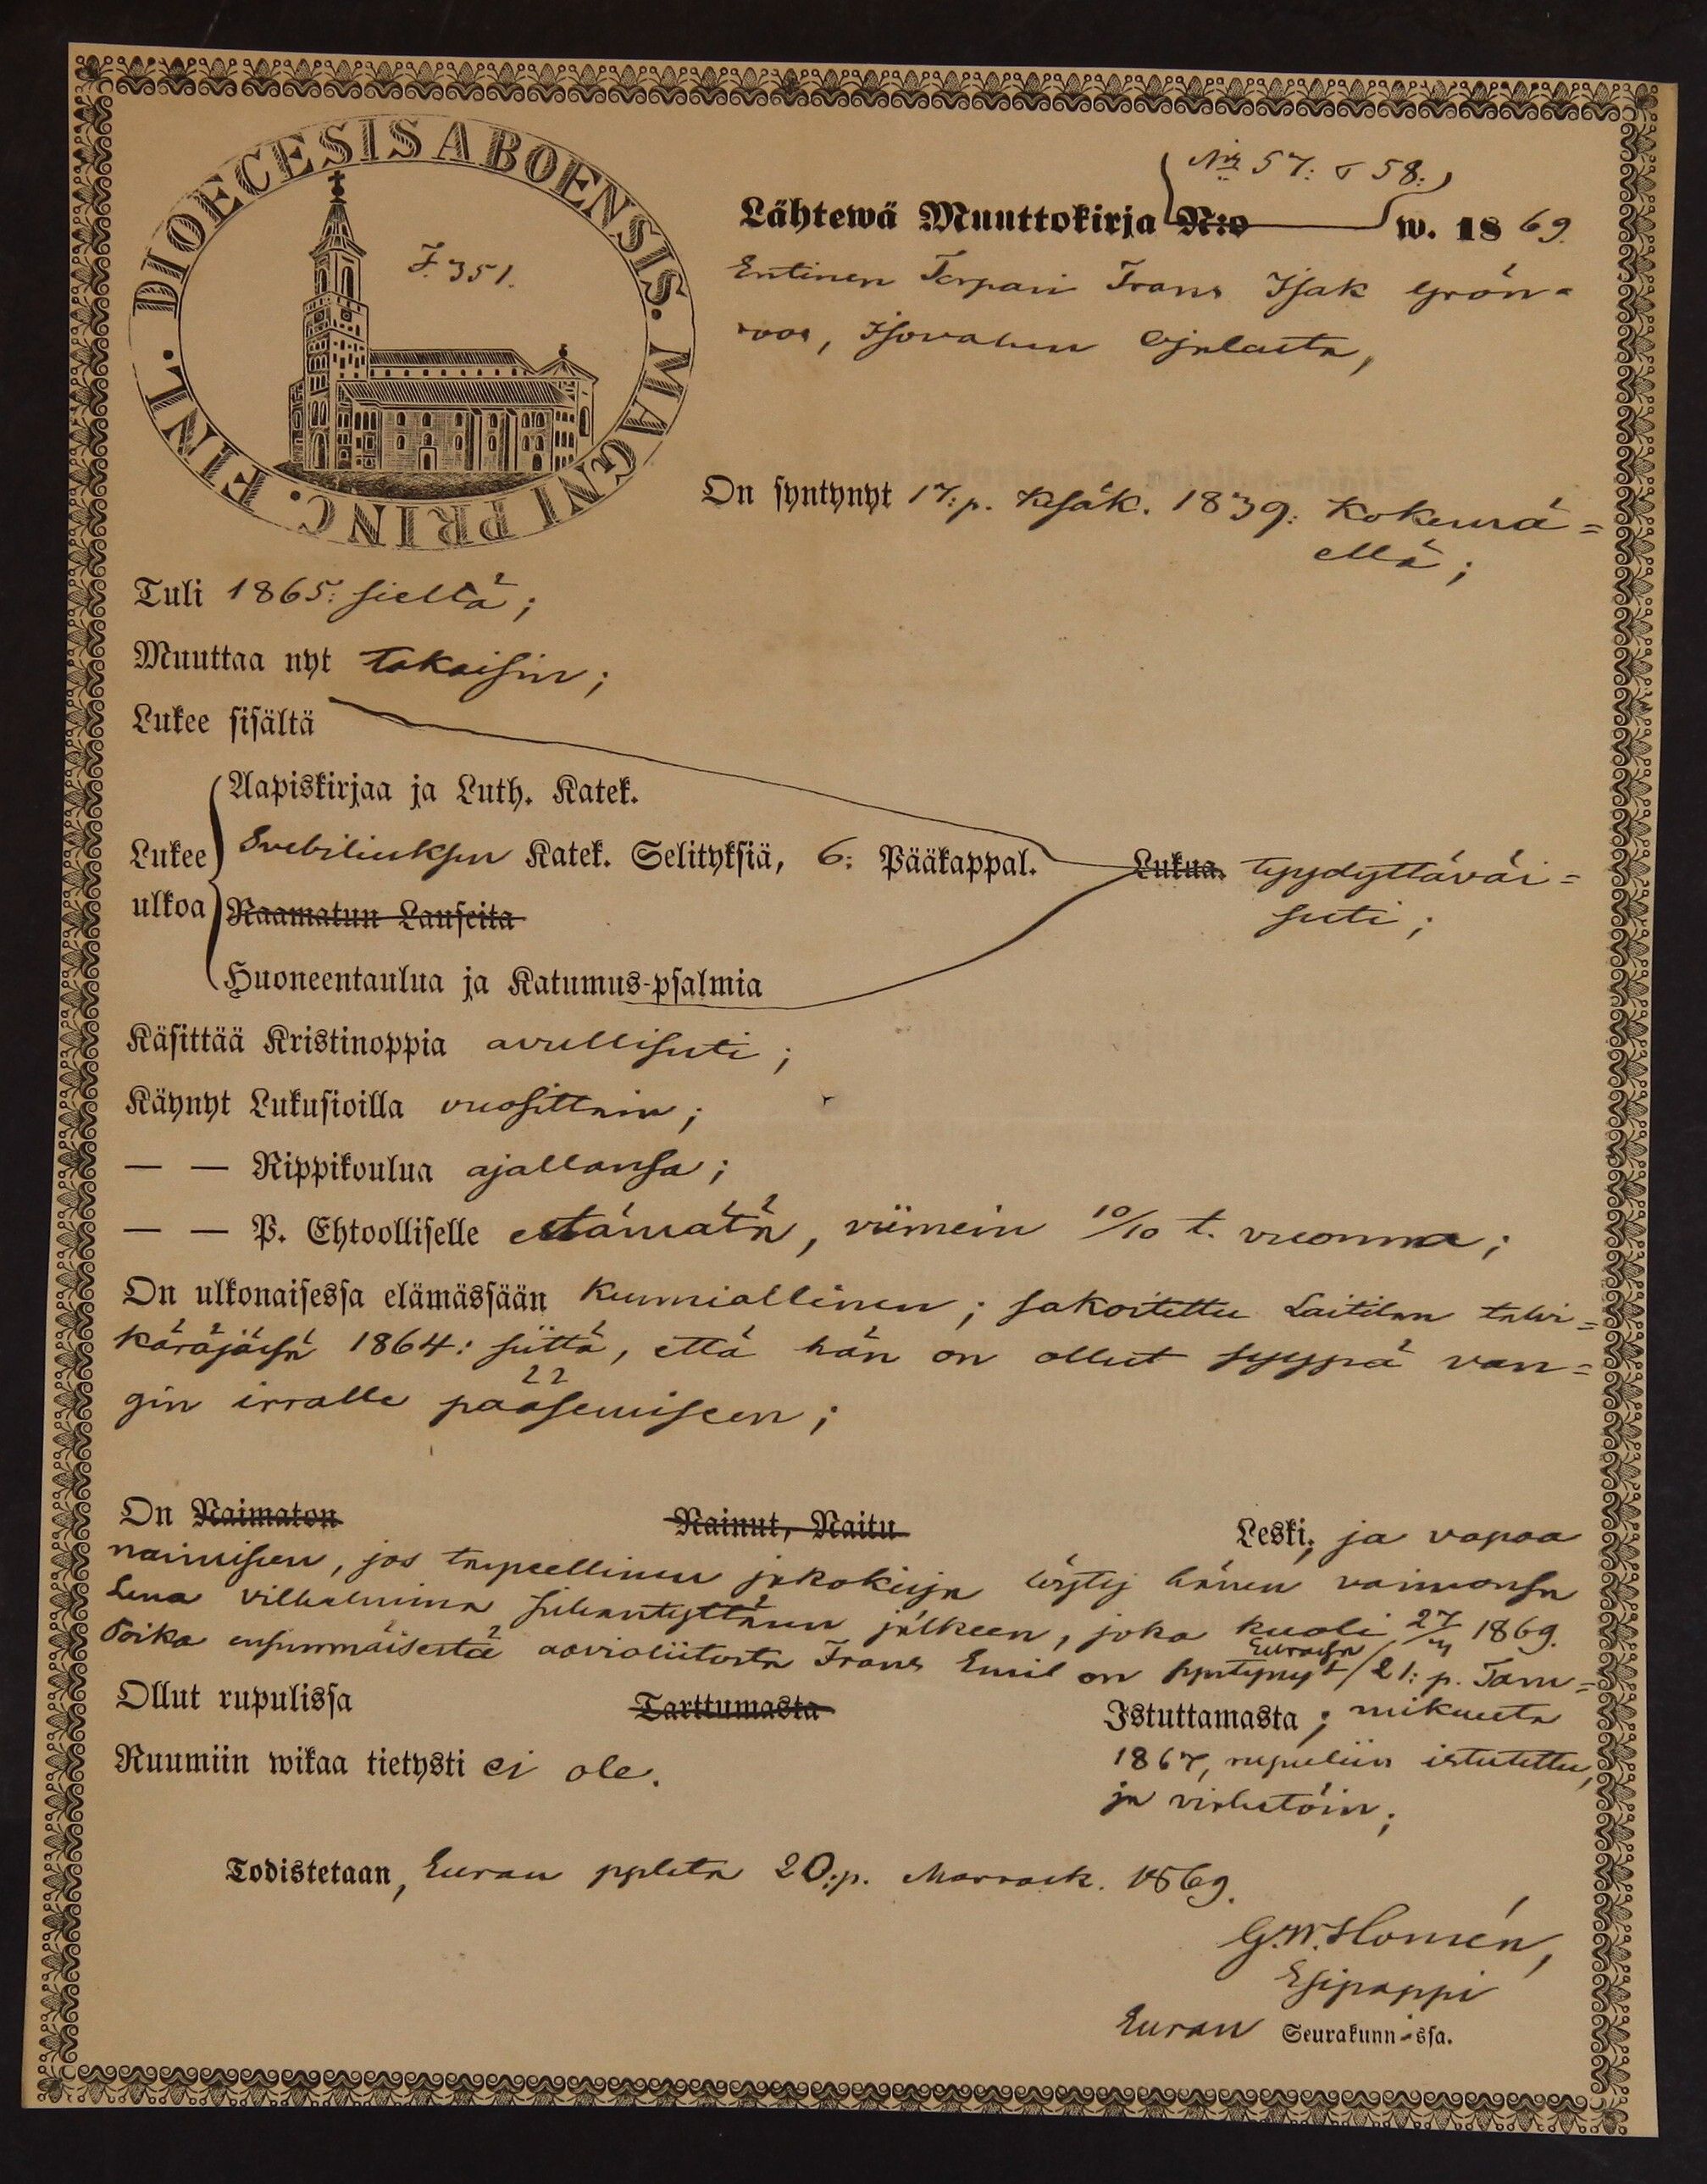 DIOECESIS ABOENSIS. MAGNI PRINC. FINL.
F. 351.
N:ris 57: & 58:
Lähtewä Muuttokirja N:o w. 1869.
Entinen Torpari Frans Isak Grön=
roos, Isovahen Ojalasta,
On syntynyt 17:p. Kesäk. 1839: Kokemä=
ellä;
Tuli 1865: sieltä;
Muuttaa nyt takaisin;
Lukee sisältä
Aapiskirjaa ja Luth. Katek.
Lukee Svebiliuksen Katek. Selityksiä, 6: Pääkappal. Lukua. tyydyttäväi=
ulkoa Raamatun Lauseita sesti;
Huoneentaulua ja Katumus-psalmia
Käsittää Kristinoppia avullisesti;
Käynyt Lukusioilla vuosittain;
— — Rippikoulua ajallansa;
— — P. Ehtoolliselle estämätä, viimein 10/10 t. vuonna;
On ulkonaisessa elämässään kunniallinen; sakoitettu Laitilan talvi=
käräjäisä 1864: siitä, että hän on ollut syypä van=
gin irralle pääsemiseen;
On Naimaton Nainut, Naitu Leski, ja vapaa
naimiseen, jos tarpeellinen jakokirja löytyy hänen vaimonsa
Lena Vilhelmina Juhantyttären jälkeen, joka kuoli 27/ 1869.
Poika ensimmäisestä aovioliitosta Frans Emil on syntynyt Eurassa 21: p. Tam=
Ollut rupulissa Tarttumasta Istuttamasta; mikuuta
Ruumiin wikaa tietysti ei ole. 1867, rupuliin istutettu,
ja virhetöin;
Todistetaan, Euran pplsta 20:p. Marrask. 1869.
G.W. Homén,
Esipappi
Euran Seurakunn-ssa.